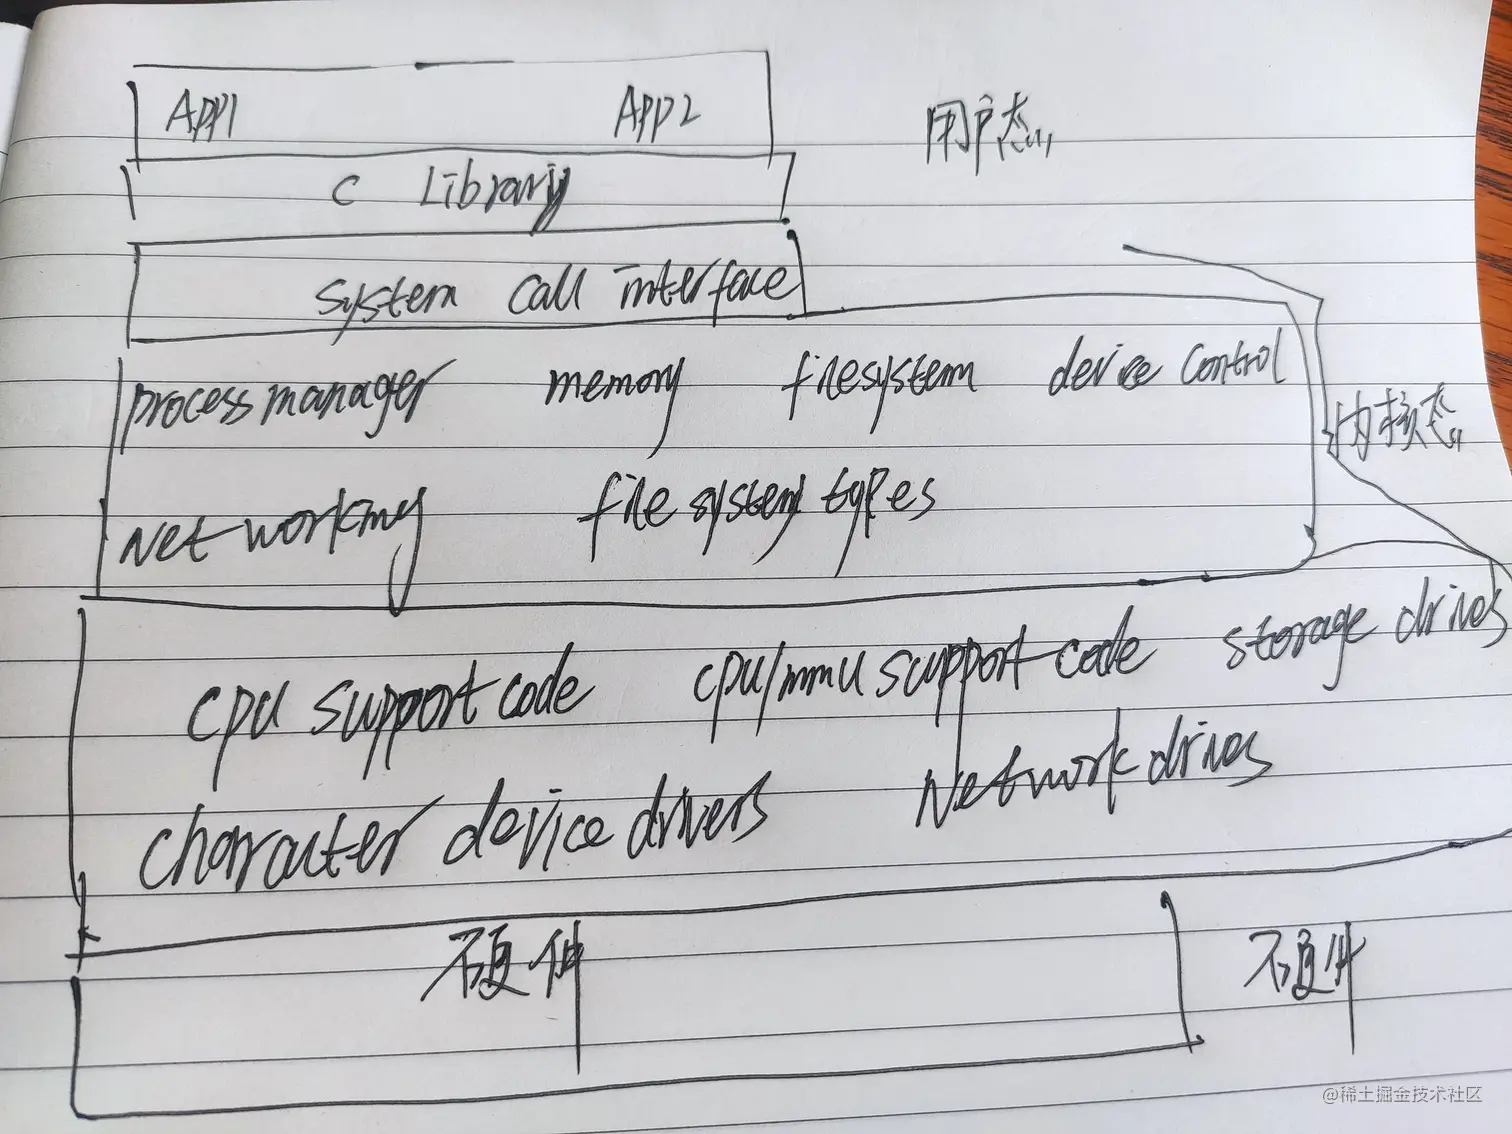 APP1 APP2 用户态
C Library
System call interface
process manager memory filesystem device control
内核态
Networking file system types
cpu support code cpu/mmu support code storage drives
character device drivers Network drives
硬件 硬件
@稀土掘金技术社区